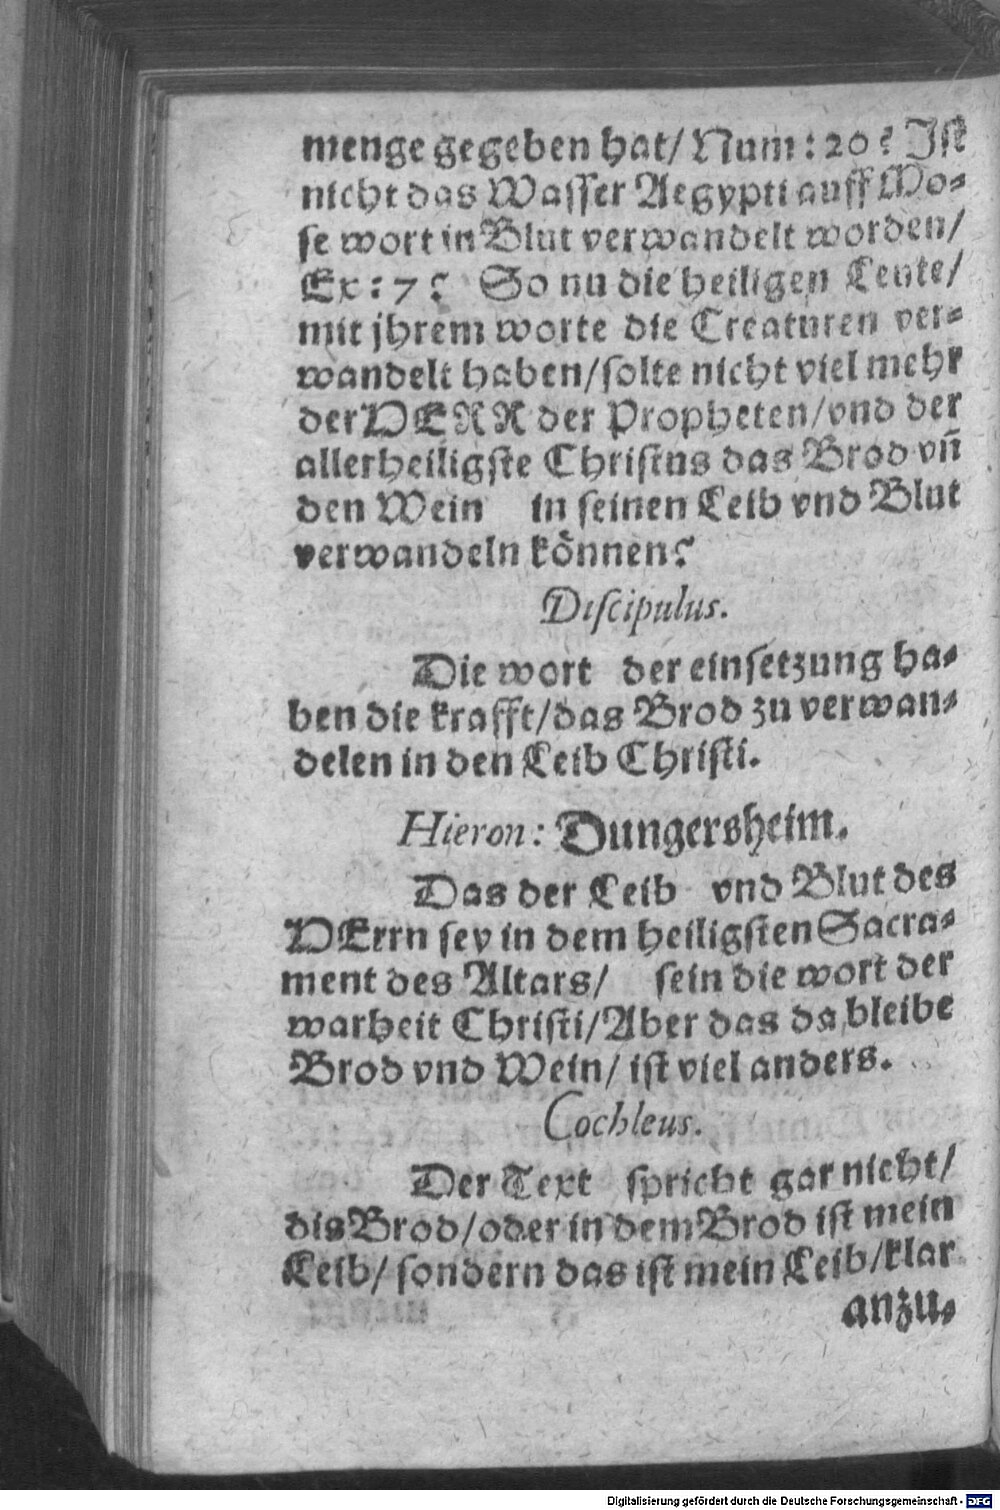 menge gegeben hat/ Num: 20? Jſt
nicht das Waſſer Aegypti auff Mo⸗
ſe wort in Blut verwandelt worden/
Ex: 7? So nu die heiligen Leute/
mit jhrem worte die Creaturen ver⸗
wandelt haben/ ſolte nicht viel mehr
der HERR der Propheten/ vnd der
allerheiligſte Chriſtus das Brod vñ
den Wein in ſeinen Leib vnd Blut
verwandeln können?
Diſcipulus.
Die wort der einſetzung ha⸗
ben die krafft/ das Brod zu verwan⸗
delen in den Leib Chriſti.
Hieron: Dungersheim.
Das der Leib vnd Blut des
HErrn ſey in dem heiligſten Sacra⸗
ment des Altars/ ſein die wort der
warheit Chriſti/ Aber das da bleibe
Brod vnd Wein/ iſt viel anders.
Cochleus.
Der Text ſpricht gar nicht/
dis Brod/ oder in dem Brod iſt mein
Leib/ ſondern das iſt mein Leib/ klar
anzu⸗
Digitalisierung gefördert durch die Deutsche Forschungsgemeinschaft - DFG